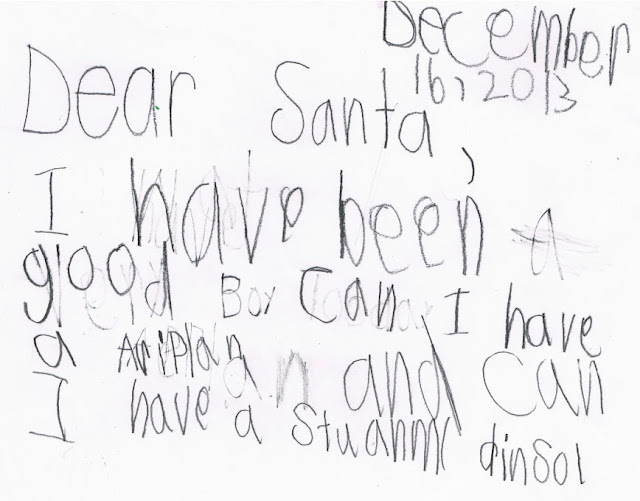 December
16, 2013
Dear Santa,
I have been a
good Boy Can I have
a Ariplan and Can
I have a Stuanmc dinsol